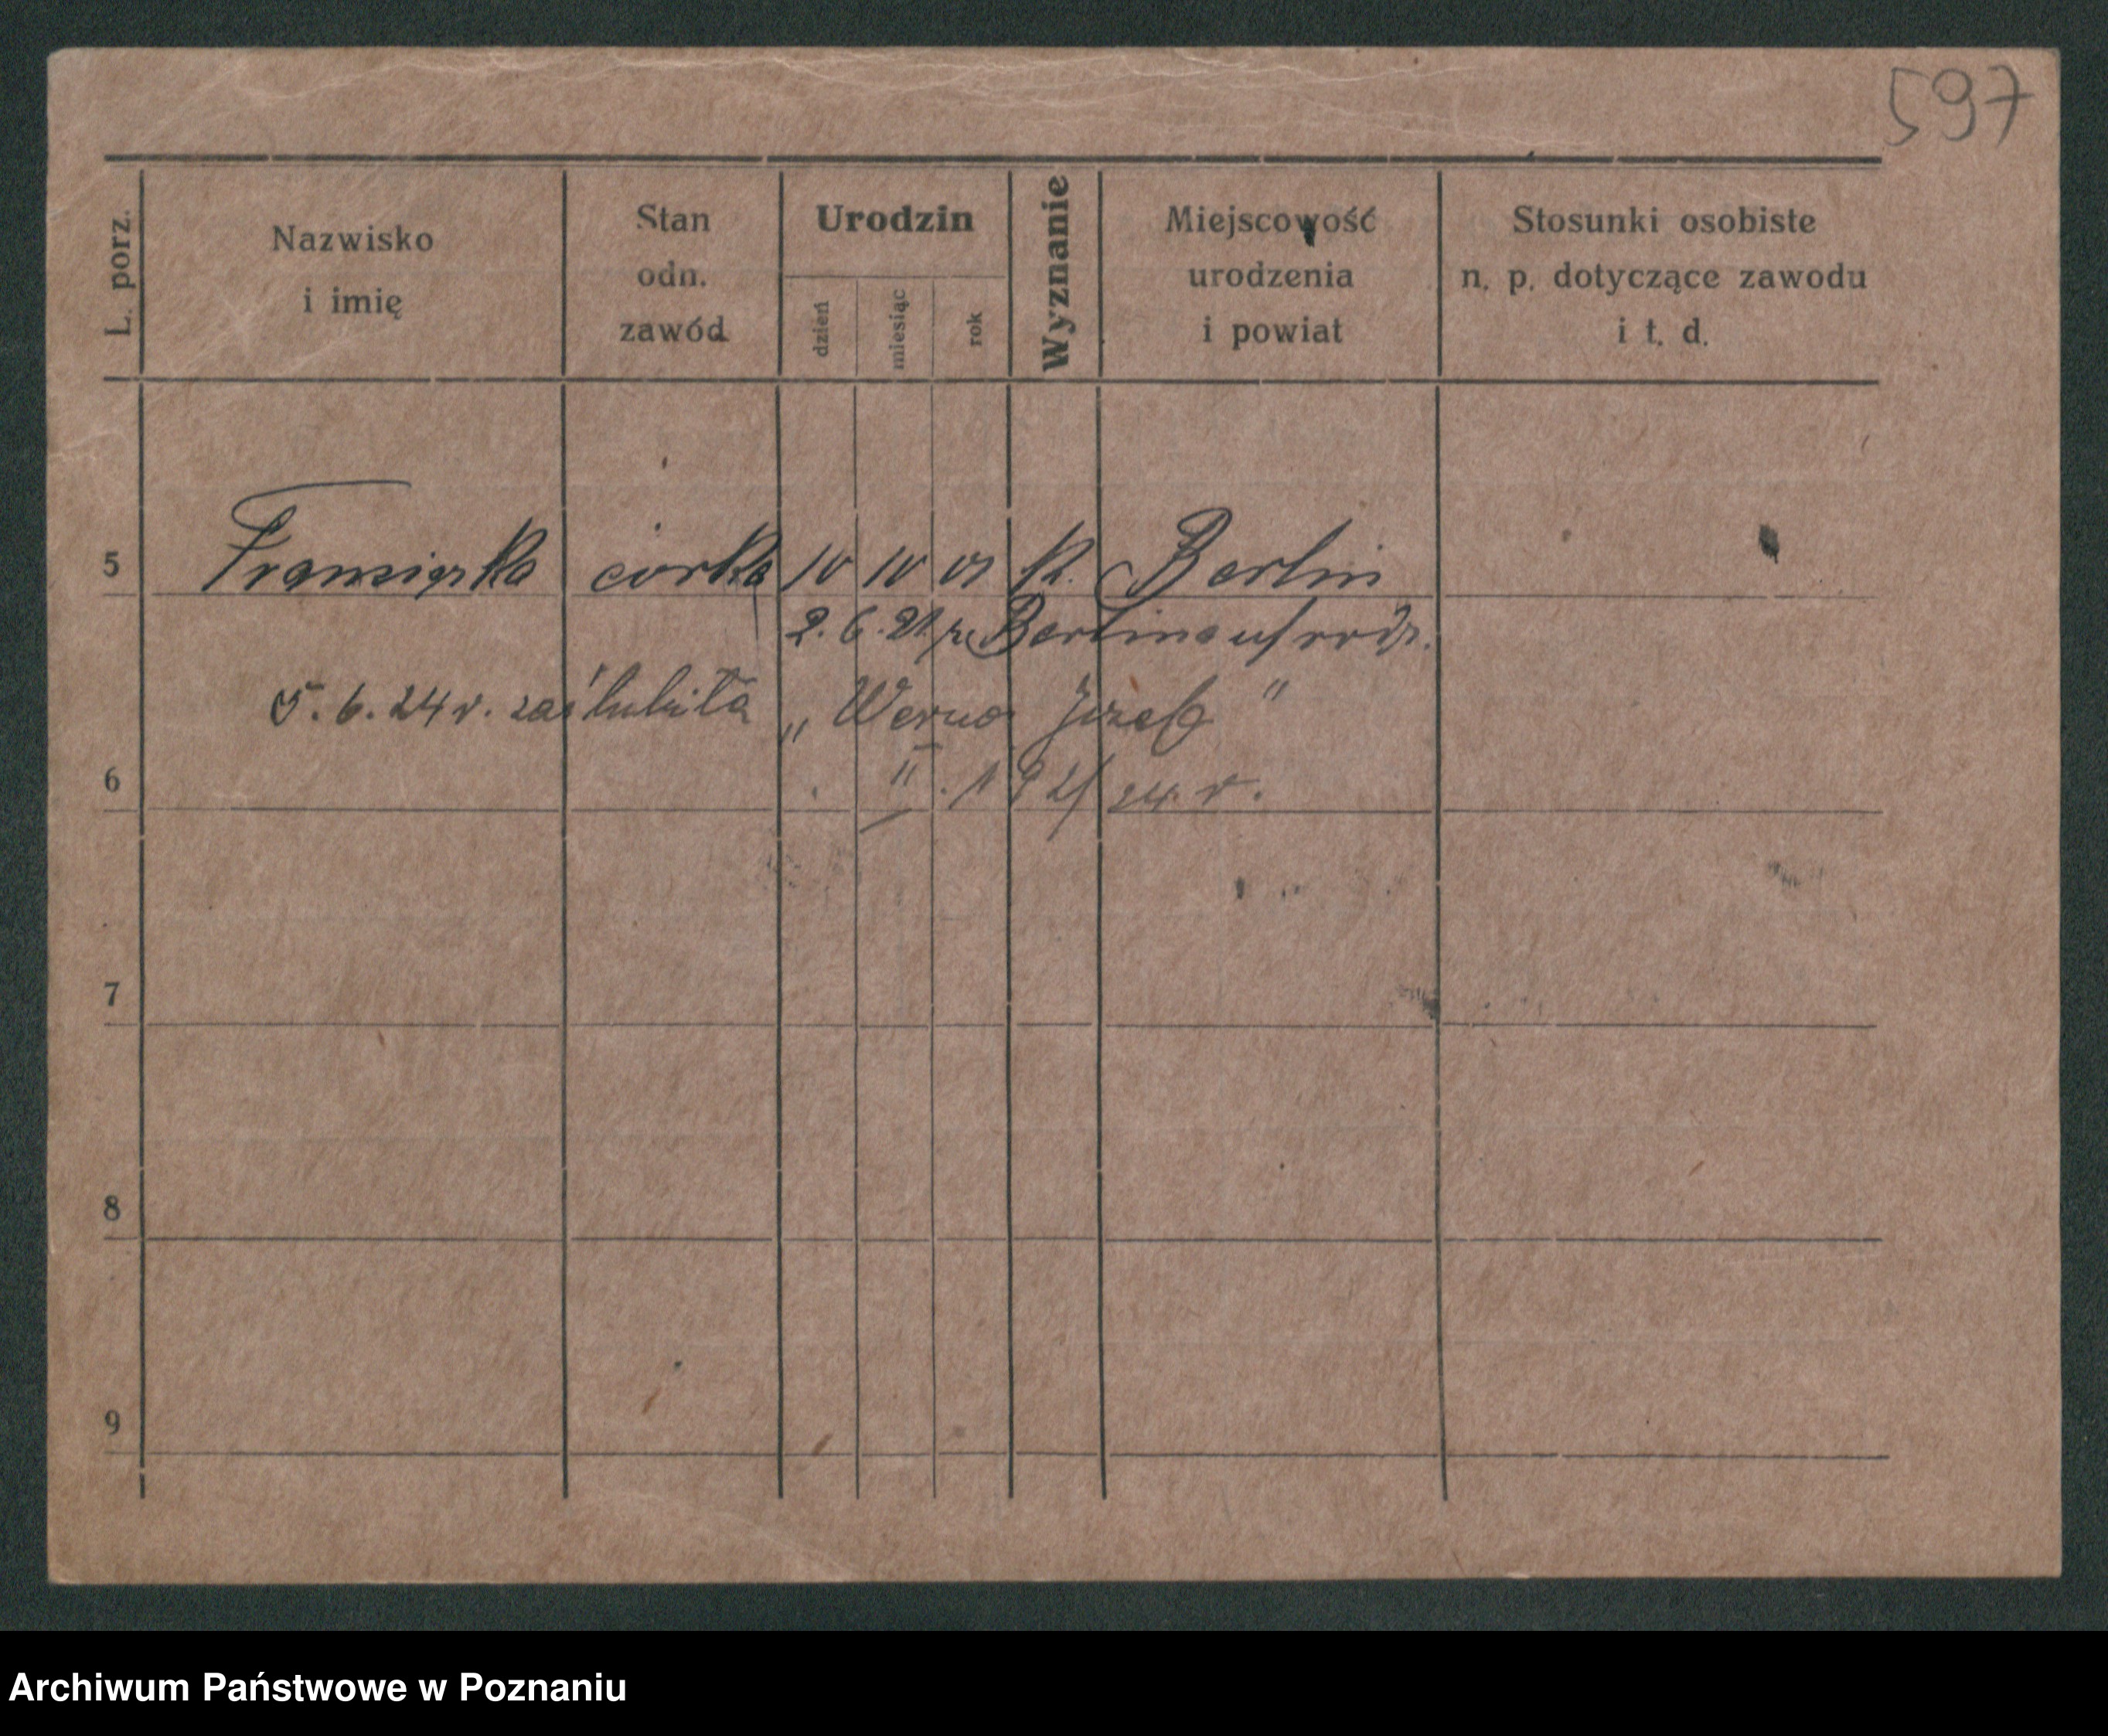 597
L. porz.
Nazwisko
i imię
Stan
odn.
zawód
Urodzin
dzień
miesiąc
rok
Wyznanie
Miejscowość
urodzenia
i powiat
Stosunki osobiste
n. p. dotyczące zawodu
i t. d.
5 Franciszka córka 10 10 01 kt. Berlin
2. 6. 21 z Berlina
5. 6. 24 r. zaślubiła „Werno Józef"
6 II. 192/24. r.
7
8
9
Archiwum Państwowe w Poznaniu